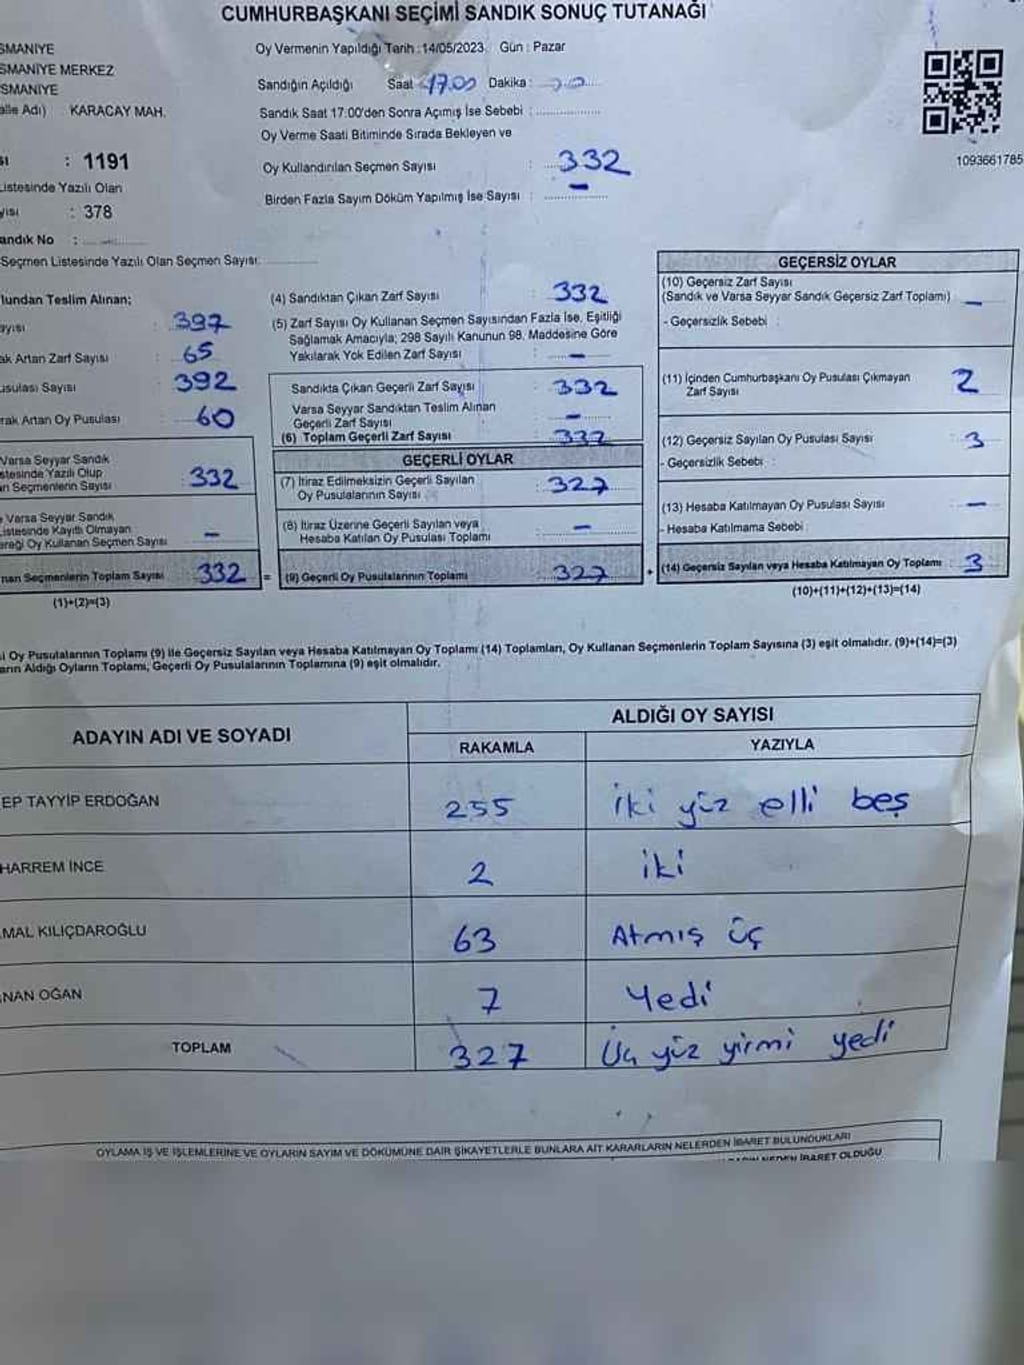 CUMHURBAŞKANI SEÇİMİ SANDIK SONUÇ TUTANAĞI
SMANİYE
SMANİYE MERKEZ
SMANİYE
alle Adı) KARACAY MAH.
Oy Vermenin Yapıldığı Tarih : 14/05/2023 Gün : Pazar
Sandığın Açıldığı Saat 17.00 Dakika :
Sandık Saat 17:00'den Sonra Açımış İse Sebebi :
Oy Verme Saati Bitiminde Sırada Bekleyen ve
Oy Kullandırılan Seçmen Sayısı : 332
Birden Fazla Sayım Döküm Yapılmış İse Sayısı : -
1093661785
sı : 1191
Listesinde Yazılı Olan
yısı : 378
andık No :
Seçmen Listesinde Yazılı Olan Seçmen Sayısı:
lundan Teslim Alınan;
ayısı : 397
ak Artan Zarf Sayısı : 65
usulası Sayısı : 392
rak Artan Oy Pusulası : 60
Varsa Seyyar Sandık
stesinde Yazılı Olup
an Seçmenlerin Sayısı 332
Varsa Seyyar Sandık
Listesinde Kayıtlı Olmayan
ereği Oy Kullanan Seçmen Sayısı -
nan Seçmenlerin Toplam Sayısı 332 =
(1)+(2)=(3)
(4) Sandıktan Çıkan Zarf Sayısı : 332
(5) Zarf Sayısı Oy Kullanan Seçmen Sayısından Fazla İse, Eşitliği
Sağlamak Amacıyla; 298 Sayılı Kanunun 98. Maddesine Göre
Yakılarak Yok Edilen Zarf Sayısı : -
Sandıkta Çıkan Geçerli Zarf Sayısı : 332
Varsa Seyyar Sandıktan Teslim Alınan
Geçerli Zarf Sayısı : -
(6) Toplam Geçerli Zarf Sayısı : 332
GEÇERLİ OYLAR
(7) İtiraz Edilmeksizin Geçerli Sayılan
Oy Pusulalarının Sayısı : 327
(8) İtiraz Üzerine Geçerli Sayılan veya
Hesaba Katılan Oy Pusulası Toplamı : -
(9) Geçerli Oy Pusulalarının Toplamı : 327 +
GEÇERSİZ OYLAR
(10) Geçersiz Zarf Sayısı
(Sandık ve Varsa Seyyar Sandık Geçersiz Zarf Toplamı) -
- Geçersizlik Sebebi :
(11) İçinden Cumhurbaşkanı Oy Pusulası Çıkmayan
Zarf Sayısı : 2
(12) Geçersiz Sayılan Oy Pusulası Sayısı : 3
- Geçersizlik Sebebi :
(13) Hesaba Katılmayan Oy Pusulası Sayısı : -
- Hesaba Katılmama Sebebi :
(14) Geçersiz Sayılan veya Hesaba Katılmayan Oy Toplamı : 3
(10)+(11)+(12)+(13)=(14)
i Oy Pusulalarının Toplamı (9) ile Geçersiz Sayılan veya Hesaba Katılmayan Oy Toplamı (14) Toplamları, Oy Kullanan Seçmenlerin Toplam Sayısına (3) eşit olmalıdır. (9)+(14)=(3)
arın Aldığı Oyların Toplamı, Geçerli Oy Pusulalarının Toplamına (9) eşit olmalıdır.
ADAYIN ADI VE SOYADI
ALDIĞI OY SAYISI
RAKAMLA YAZIYLA
EP TAYYİP ERDOĞAN 255 iki yüz elli beş
HARREM İNCE 2 iki
MAL KILIÇDAROĞLU 63 Atmış üç
NAN OĞAN 7 Yedi
TOPLAM 327 Üç yüz yirmi yedi
OYLAMA İŞ VE İŞLEMLERİNE VE OYLARIN SAYIM VE DÖKÜMÜNE DAİR ŞİKAYETLERLE BUNLARA AİT KARARLARIN NELERDEN İBARET BULUNDUKLARI
NEDEN İBARET OLDUĞU